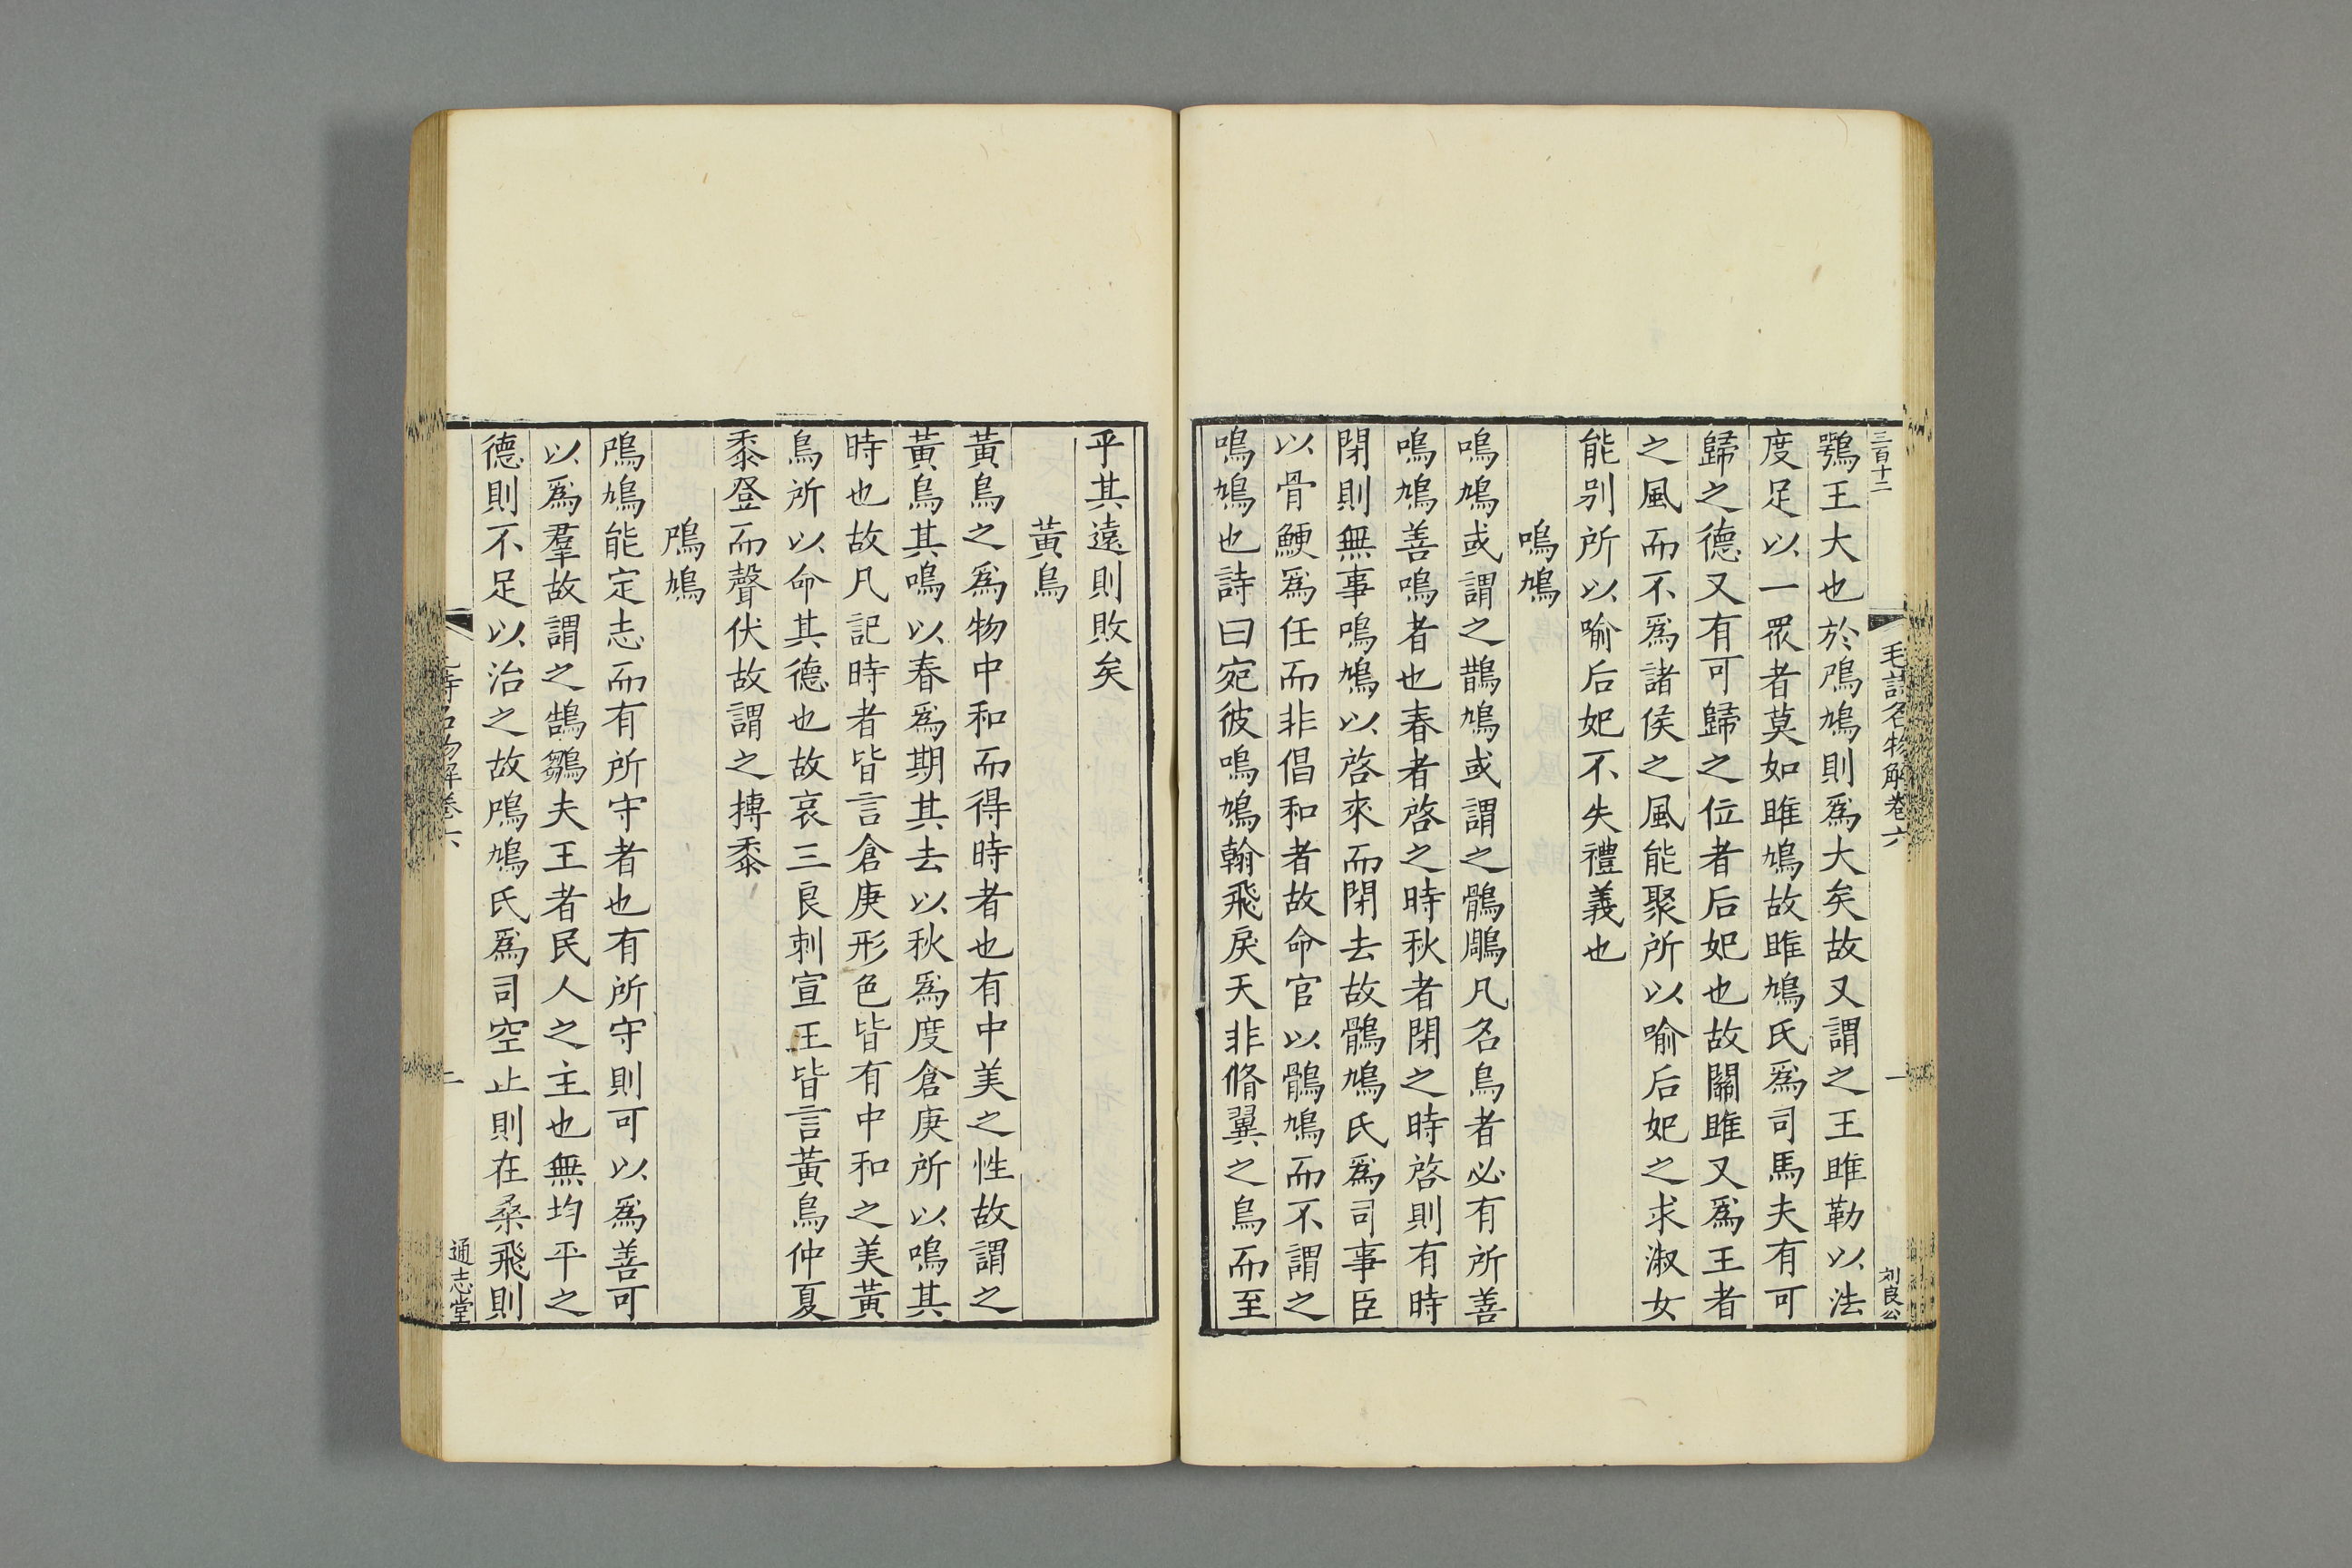 三百十二
毛詩名物解卷六
一
刘良公
鶚王大也於鳲鳩則爲大矣故又謂之王雎勒以法
度足以一眾者莫如雎鳩故雎鳩氏爲司馬夫有可
歸之德又有可歸之位者后妃也故關雎又爲王者
之風而不爲諸侯之風能聚所以喻后妃之求淑女
能别所以喻后妃不失禮義也
鳴鳩
鳴鳩或謂之鷽鳩或謂之鶻鵰凡名鳥者必有所善
鳴鳩善鳴者也春者啓之時秋者閉之時啓則有時
閉則無事鳴鳩以啓來而閉去故鶻鳩氏爲司事臣
以骨鯁爲任而非倡和者故命官以鶻鳩而不謂之
鳴鳩也詩曰宛彼鳴鳩翰飛戾天非脩翼之鳥而至
乎其遠則敗矣
黃鳥
黃鳥之爲物中和而得時者也有中美之性故謂之
黃鳥其鳴以春爲期其去以秋爲度倉庚所以鳴其
時也故凡記時者皆言倉庚形色皆有中和之美黃
鳥所以命其德也故哀三良刺宣王皆言黃鳥仲夏
黍登而聲伏故謂之搏黍
鳲鳩
鳲鳩能定志而有所守者也有所守則可以爲善可
以爲羣故謂之鵠鶵夫王者民人之主也無均平之
德則不足以治之故鳲鳩氏爲司空止則在桑飛則
毛詩名物解卷六
二
通志堂